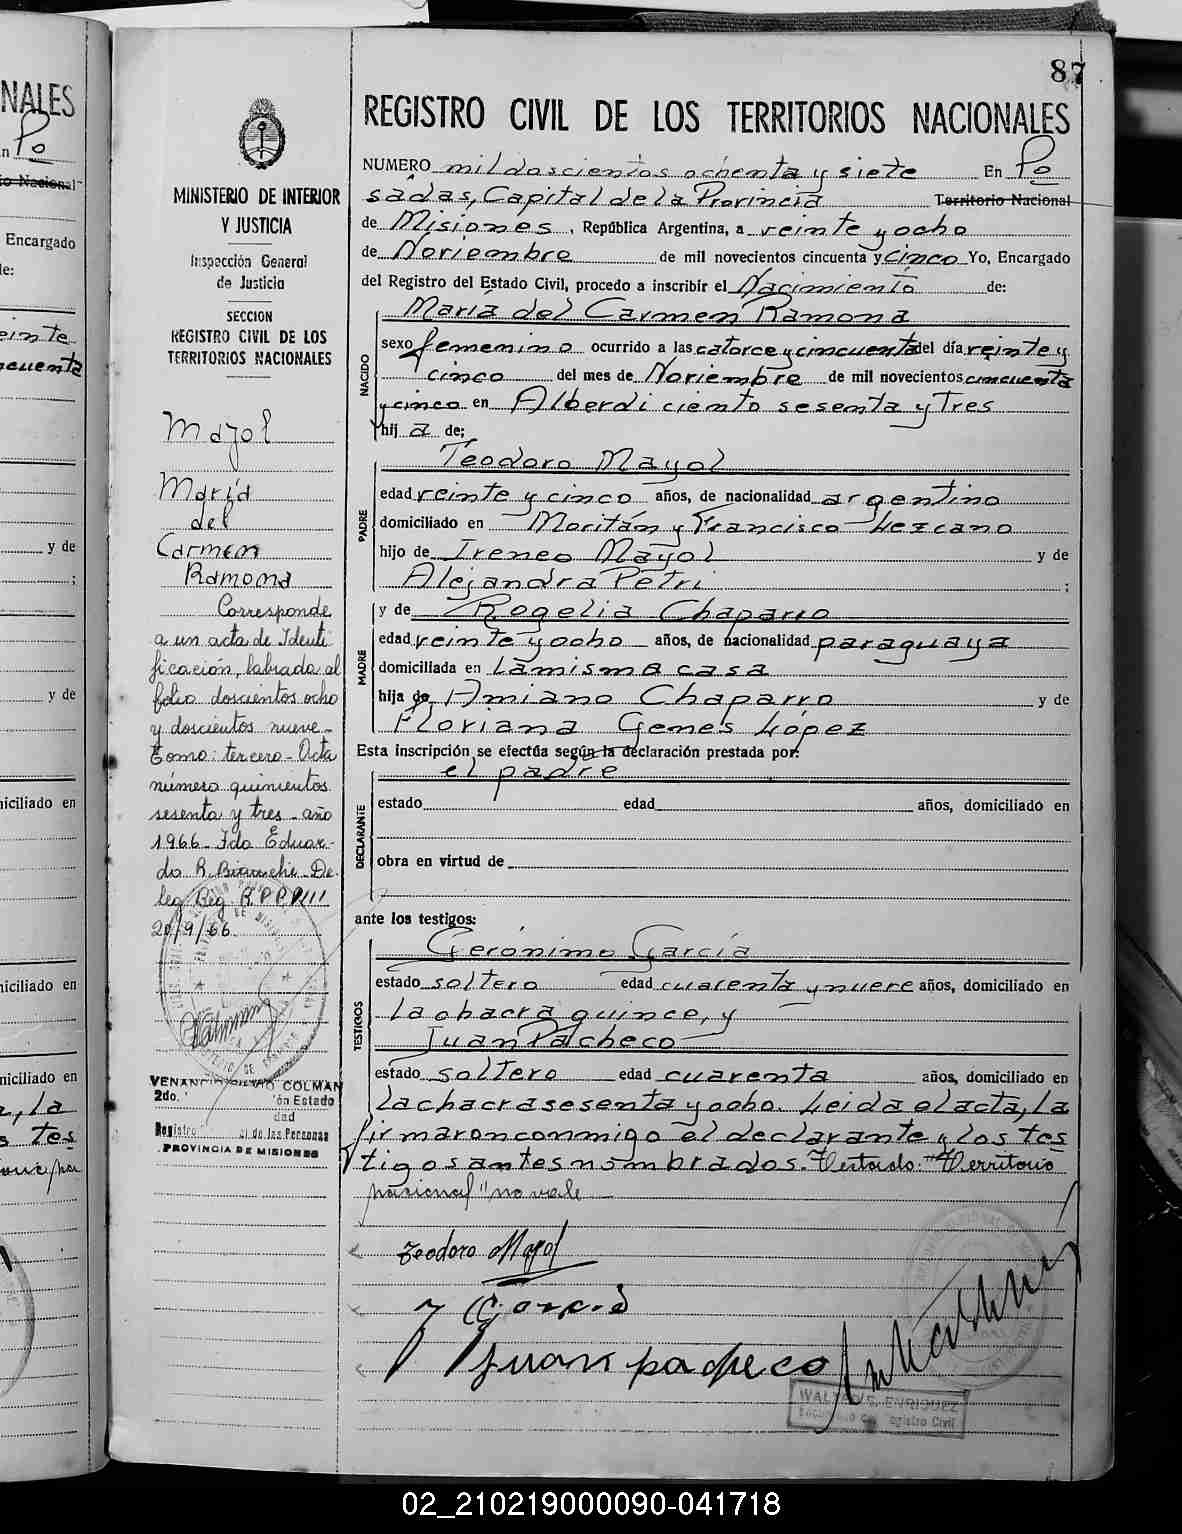 NALES
n Po
io Nacional
Encargado
de:
einte
ncuenta
y de
;
y de
niciliado en
niciliado en
niciliado en
a, la
s tes
87
MINISTERIO DE INTERIOR
Y JUSTICIA
Inspección General
de Justicia
SECCION
REGISTRO CIVIL DE LOS
TERRITORIOS NACIONALES
Mayol
María
del
Carmen
Ramona
Corresponde
a un acta de Identi
ficación, labrada al
folio doscientos ocho
y doscientos nueve-
Tomo: tercero- Acta
número quinientos
sesenta y tres - año
1966- Fdo Eduar-
do R. Bianchi- De-
leg. Reg.
20/9/66
VENANCIO SILVIO COLMAN
2do.
ón Estado
dad
Registro
al de las Personas
PROVINCIA DE MISIONES
REGISTRO CIVIL DE LOS TERRITORIOS NACIONALES
NUMERO mil doscientos ochenta y siete En Po
sadas, Capital de la Provincia Territorio Nacional
de Misiones, República Argentina, a veinte y ocho
de Noviembre de mil novecientos cincuenta y cinco Yo, Encargado
del Registro del Estado Civil, procedo a inscribir el Nacimiento de:
NACIDO
María del Carmen Ramona
sexo femenino ocurrido a las catorce y cincuenta del día veinte y
cinco del mes de Noviembre de mil novecientos cincuenta
y cinco en Alberdi ciento sesenta y tres
hij a de:
PADRE
Teodoro Mayol
edad veinte y cinco años, de nacionalidad argentino
domiciliado en Moritán y Francisco Lezcano
hijo de Ireneo Mayol y de
Alejandra Petri ;
MADRE
y de Rogelia Chaparro
edad veinte y ocho años, de nacionalidad paraguaya
domiciliada en la misma casa
hija de Amiano Chaparro y de
Floriana Genes López
Esta inscripción se efectúa según la declaración prestada por:
DECLARANTE
el padre
estado edad años, domiciliado en
obra en virtud de
ante los testigos:
TESTIGOS
Gerónimo García
estado soltero edad cuarenta y nueve años, domiciliado en
la chacra quince, y
Juan Pacheco
estado soltero edad cuarenta años, domiciliado en
la chacra sesenta y ocho. Leida el acta, la
firmaron conmigo el declarante y los tes
tigos antes nombrados. Testado: "Territorio
nacional" no vale
Teodoro Mayol
G. García
Juan pacheco
WALTER S. ENRIQUEZ
Registro Civil
02_210219000090-041718